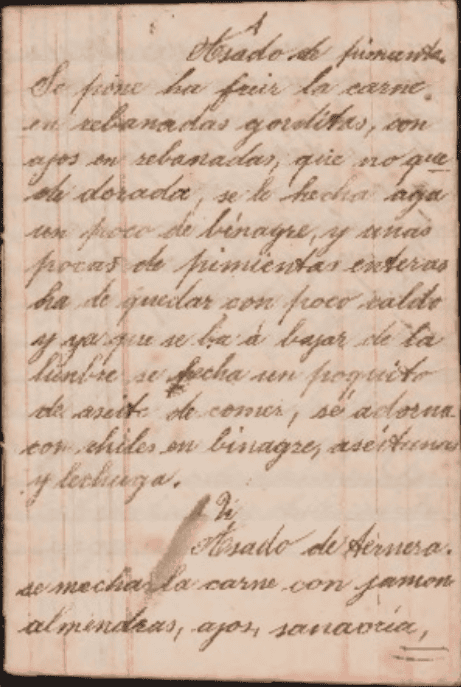 1
Asado de pimienta.
Se pone ha freir la carne
en rebanadas gorditas, con
ajos en rebanadas, que no que
de dorada, se le hecha agua
un poco de binagre, y unas
pocas de pimientas enteras
ha de quedar con poco caldo
y ya que se ba á bajar de la
lunbre se hecha un poquito
de aseite de comer, sé adorna
con chiles en binagre, aseitunas
y lechuga.
2
Asado de ternera.
se mecha la carne con jamon
almendras, ajos, sanaoria,